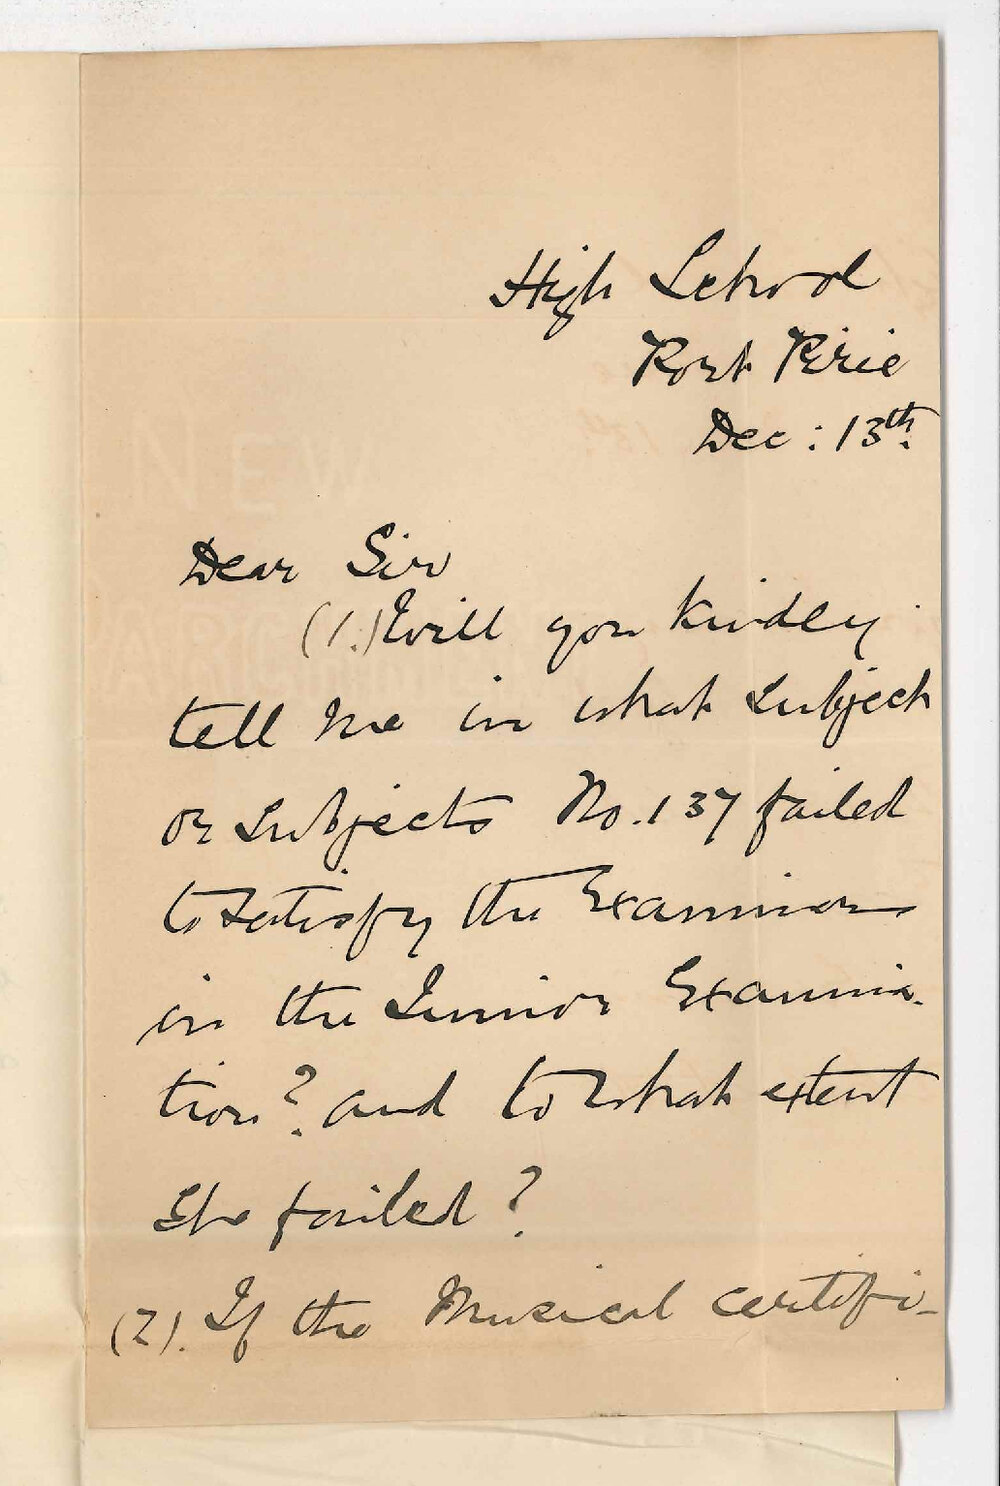 High School
Port Pirie
Dec: 13th.
Dear Sir
(1.) Will you kindly
tell me in what subject
or subjects No. 137 failed
to satisfy the Examiners
in the Junior Examina-
tion? and to what extent
she failed?
(2). If the Musical certifi-